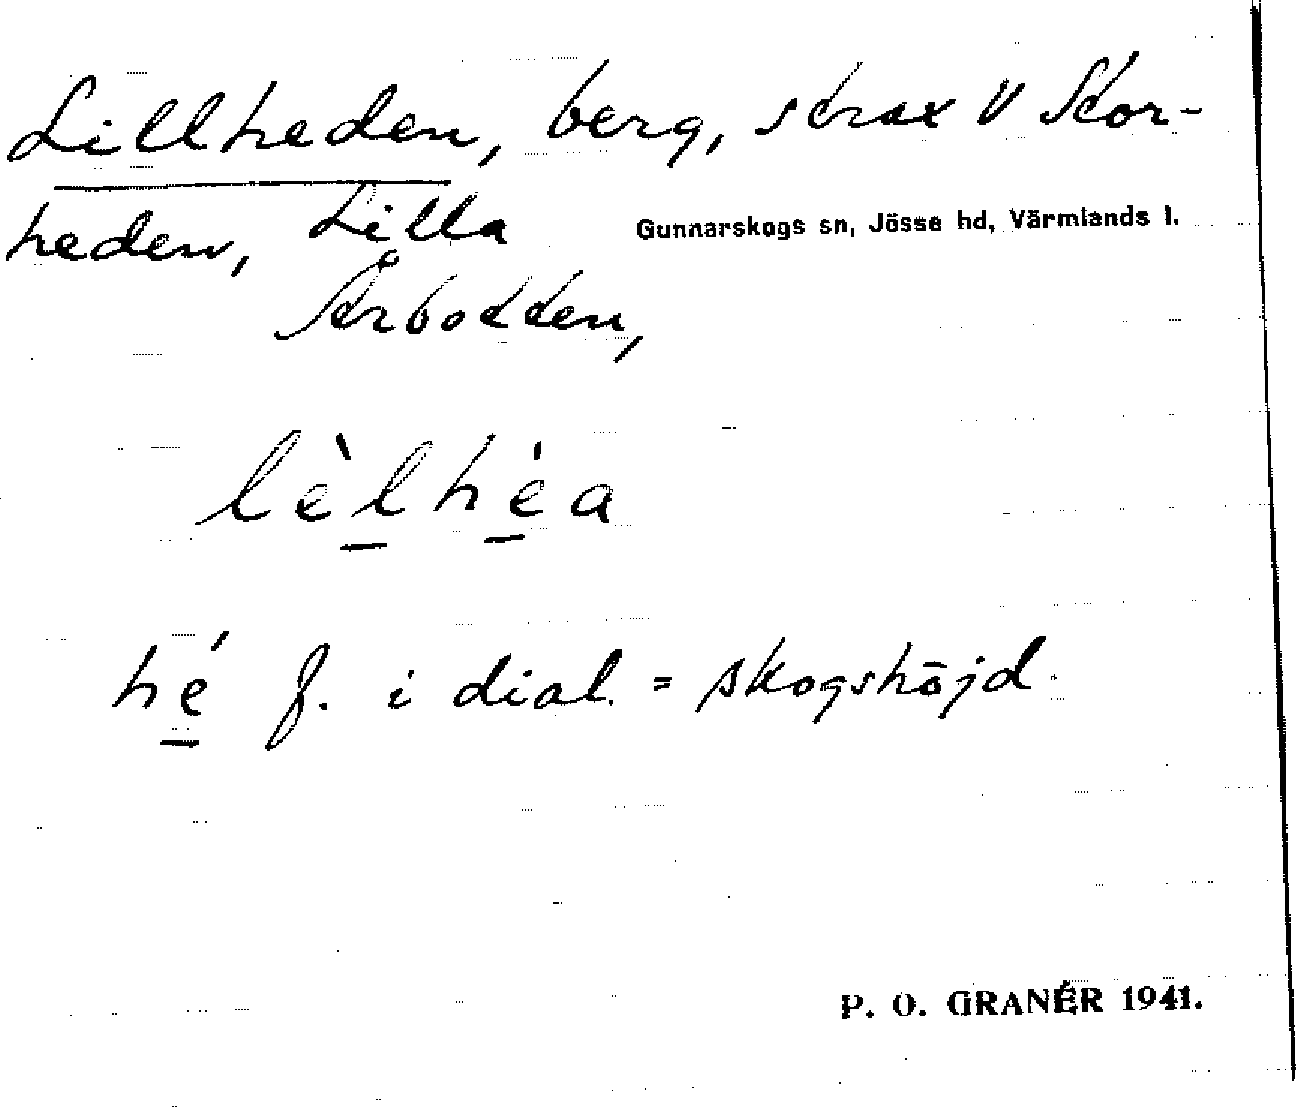 Lillheden, berg, strax V Stor-
heden, Lilla
Gunnarskogs sn, Jösse hd, Värmlands l.
Årbotten,
lèlhéa
hé f. i dial. = skogshöjd.
P. O. GRANÉR 1941.